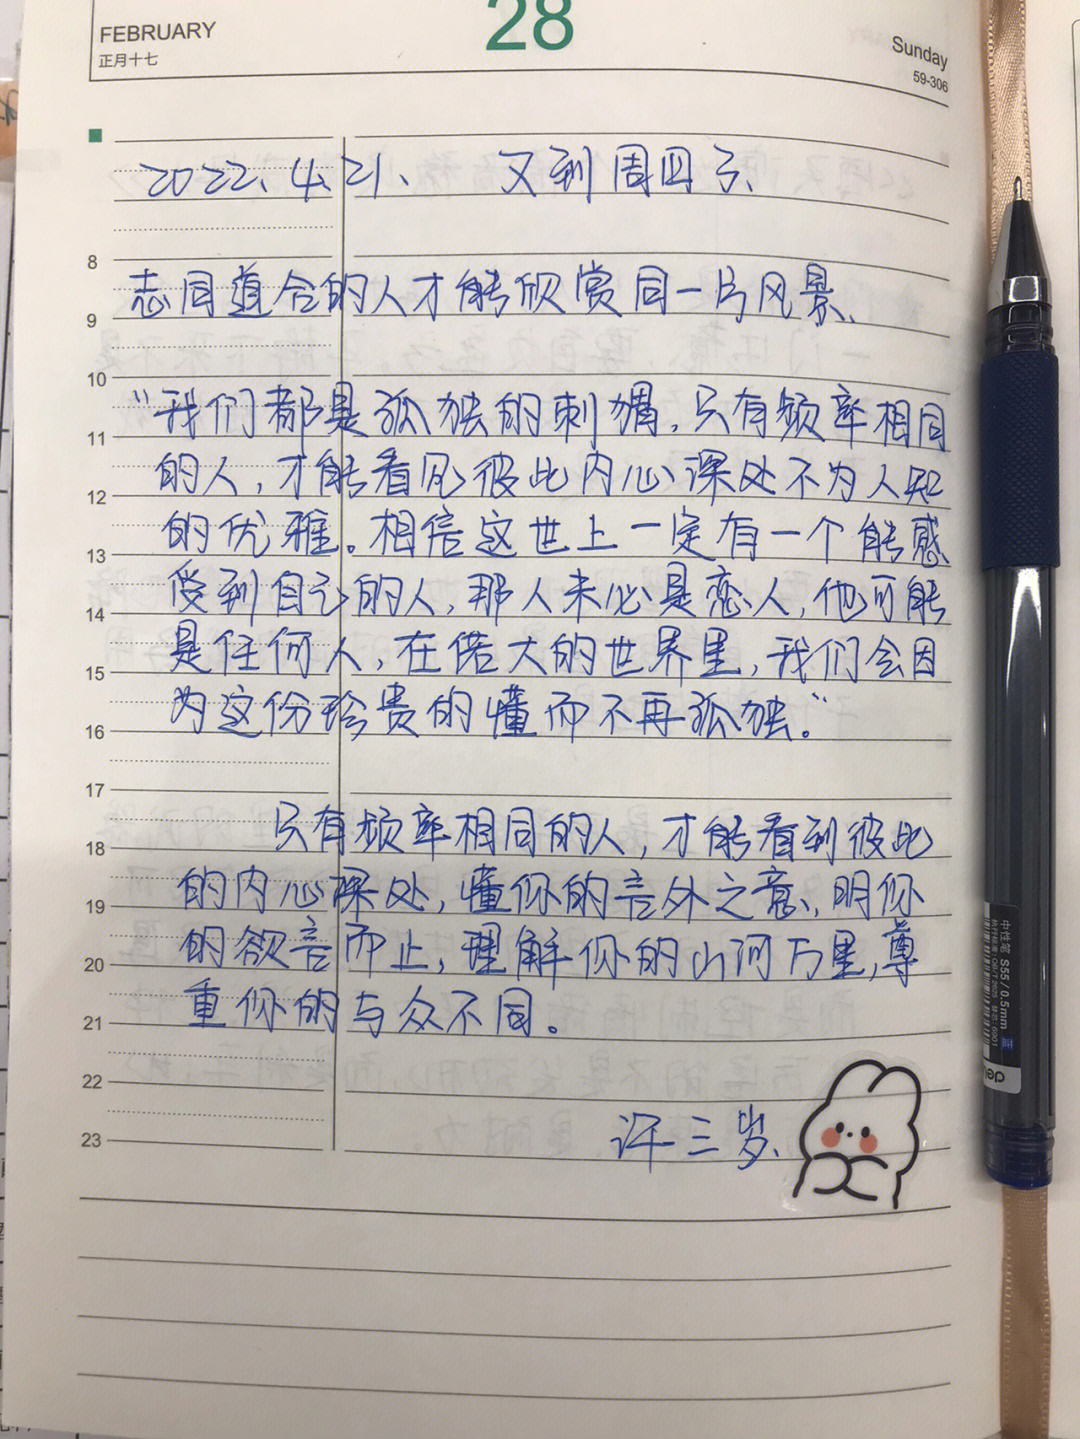 FEBRUARY
正月十七
28
Sunday
59-306
2022、4、21、 又到周四了、
8
志同道合的人才能欣赏同一片风景、
9
10
"我们都是孤独的刺猬，只有频率相同
11
的人，才能看见彼此内心深处不为人知
12
的优雅。相信这世上一定有一个能感
13
受到自己的人，那人未必是恋人，他可能
14
是任何人，在偌大的世界里，我们会因
15
为这份珍贵的懂而不再孤独。"
16
17
只有频率相同的人，才能看到彼此
18
的内心深处，懂你的言外之意，明你
19
的欲言而止，理解你的山河万里，尊
20
重你的与众不同。
21
22
23
许三岁、
中性笔 S55/0.5mm 蓝
deli